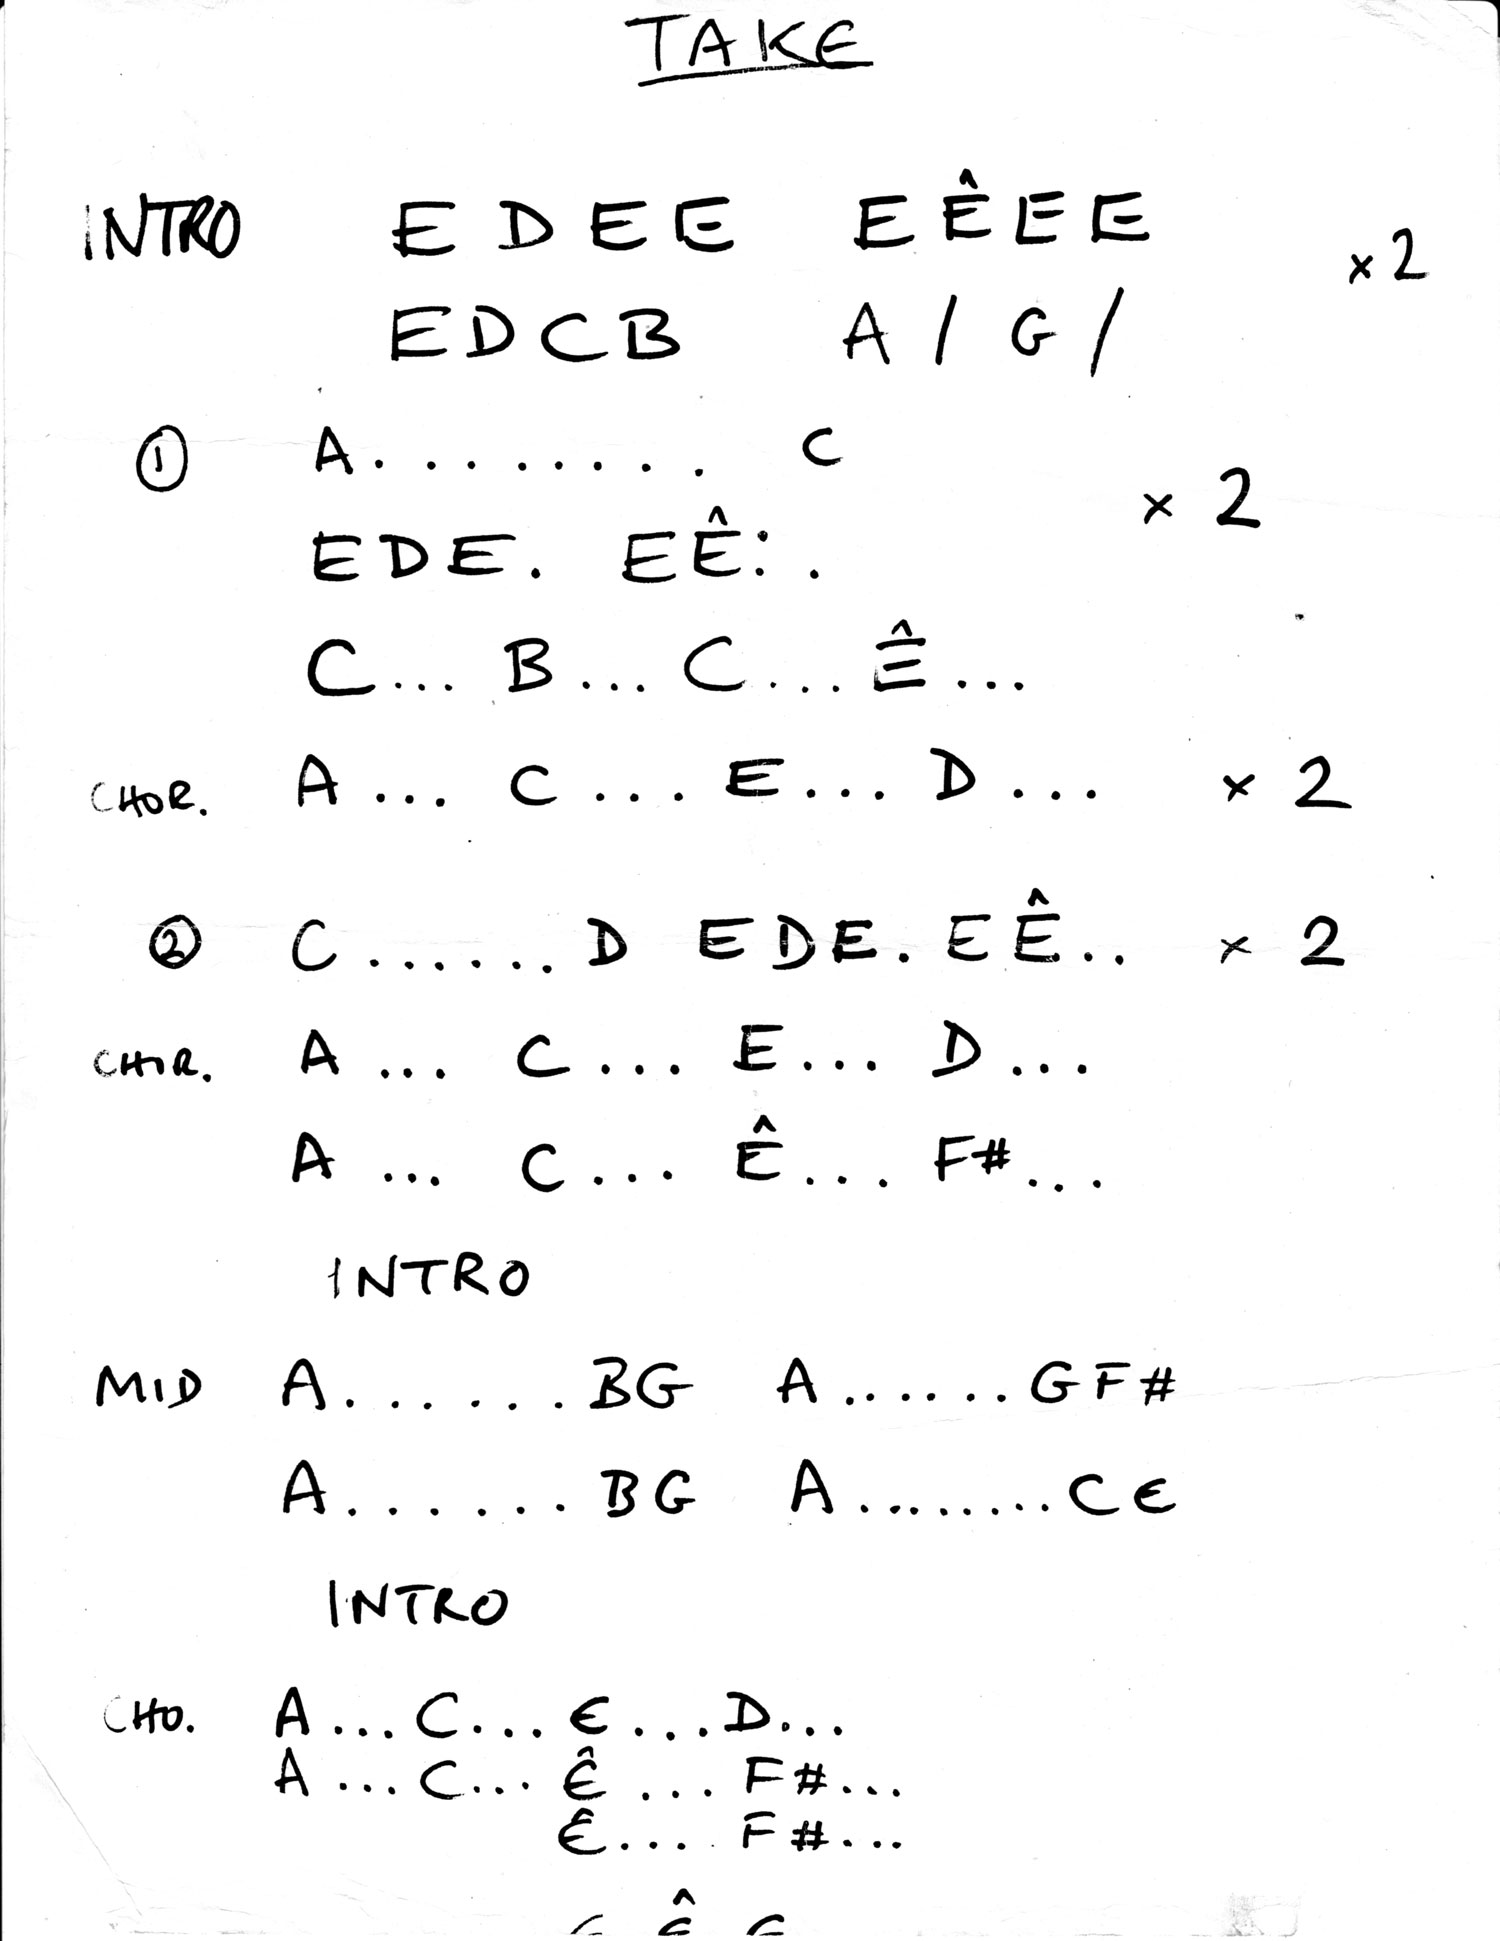 TAKE
INTRO E D E E E Ê E E x 2
E D C B A / G /
① A......... C x 2
E D E . E Ê : .
C... B... C... Ê...
CHOR. A... C... E... D... x 2
② C....... D E D E . E Ê.. x 2
CHOR. A... C... E... D...
A... C... Ê... F#...
INTRO
MID A...... BG A....... G F#
A...... BG A........ C E
INTRO
CHO. A... C... E... D...
A... C... Ê... F#...
Ê... F#...